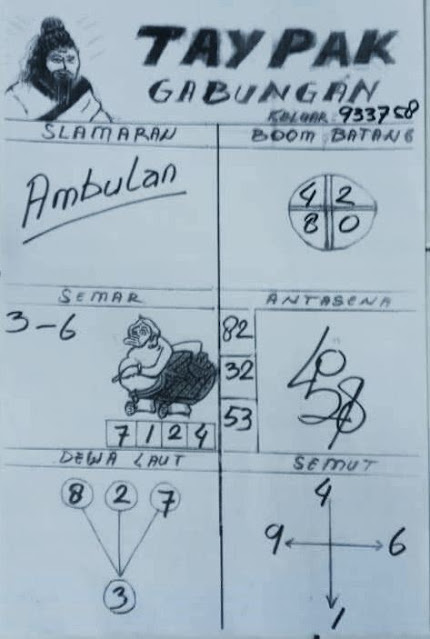 TAYPAK
GABUNGAN
KELUAR 933758
SLAMARAN
BOOM BATANG
Ambulan
4 2
8 0
SEMAR
ANTASENA
3-6
82
32
53
7 1 2 4
DEWA LAUT
SEMUT
8 2 7
3
4
9 6
1